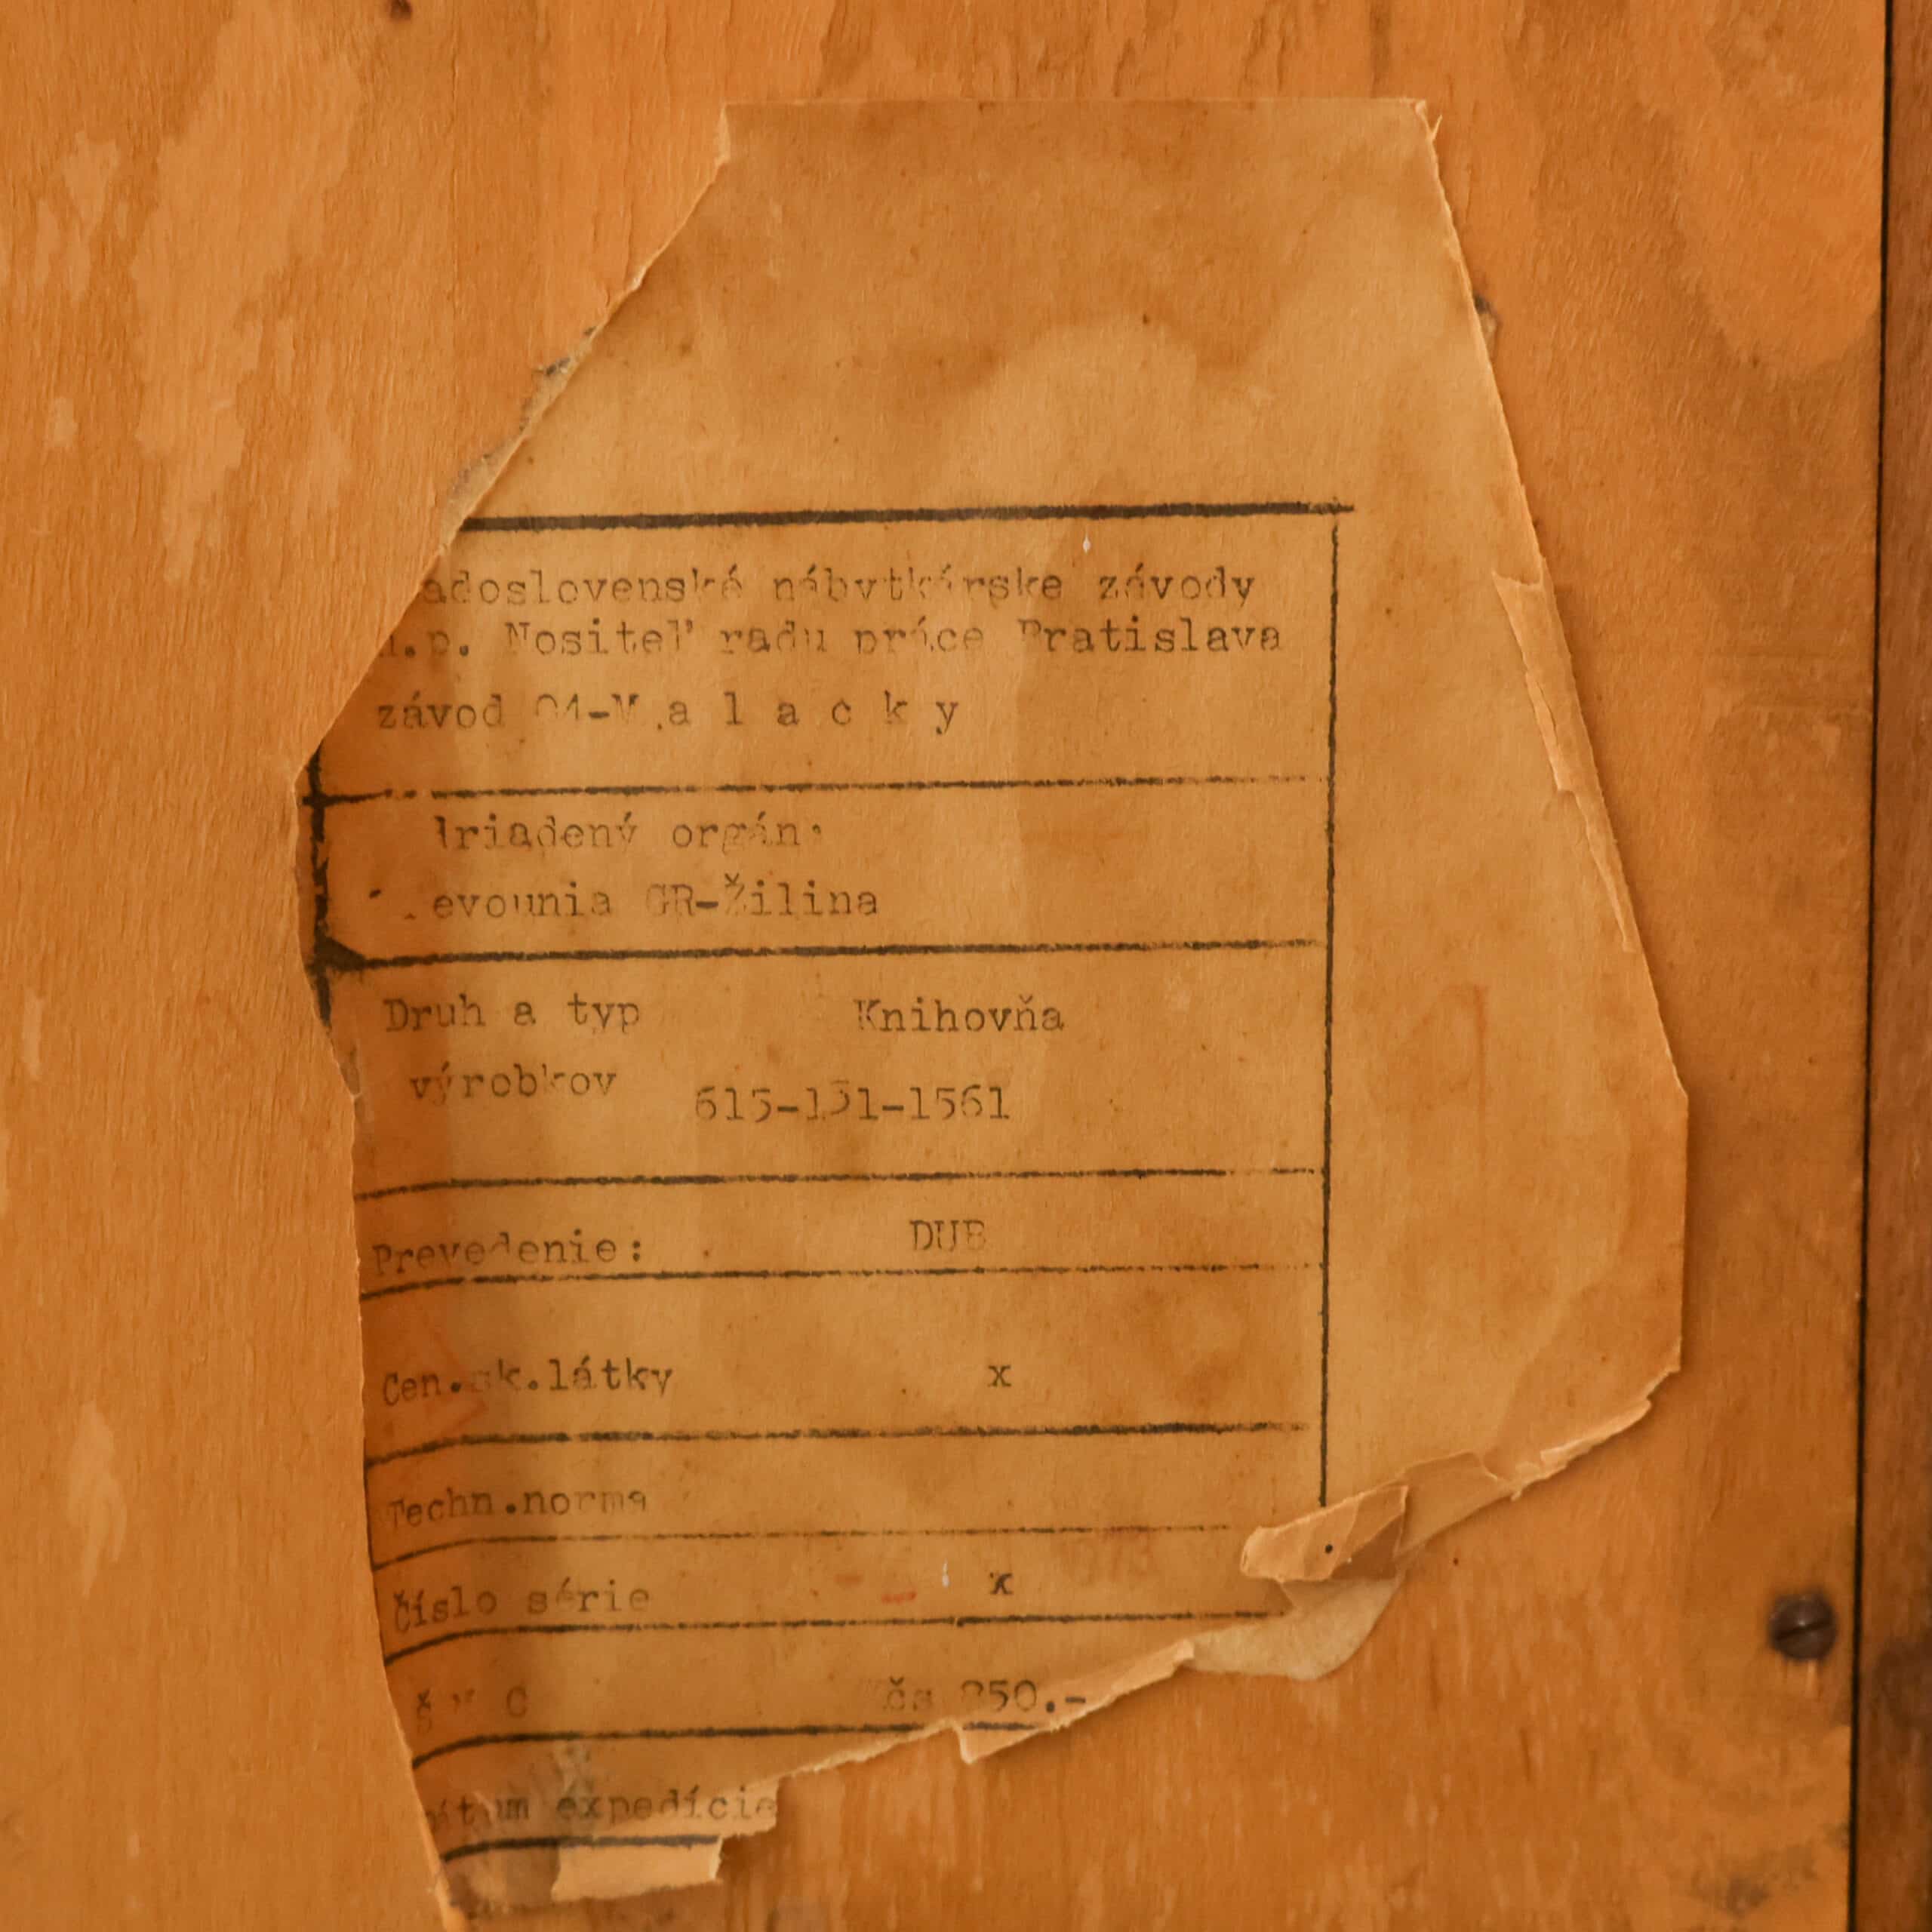 adoslovenské nábytkárske závody
n.p. Nositeľ radu práce Bratislava
závod 04-M a l a c k y
riadený orgán:
evounia GR-Žilina
Druh a typ Knihovňa
výrobkov 615-131-1561
Prevedenie: DUB
Cen.sk.látky x
Techn.norma
Číslo série x
Kčs 850.-
Dátum expedície